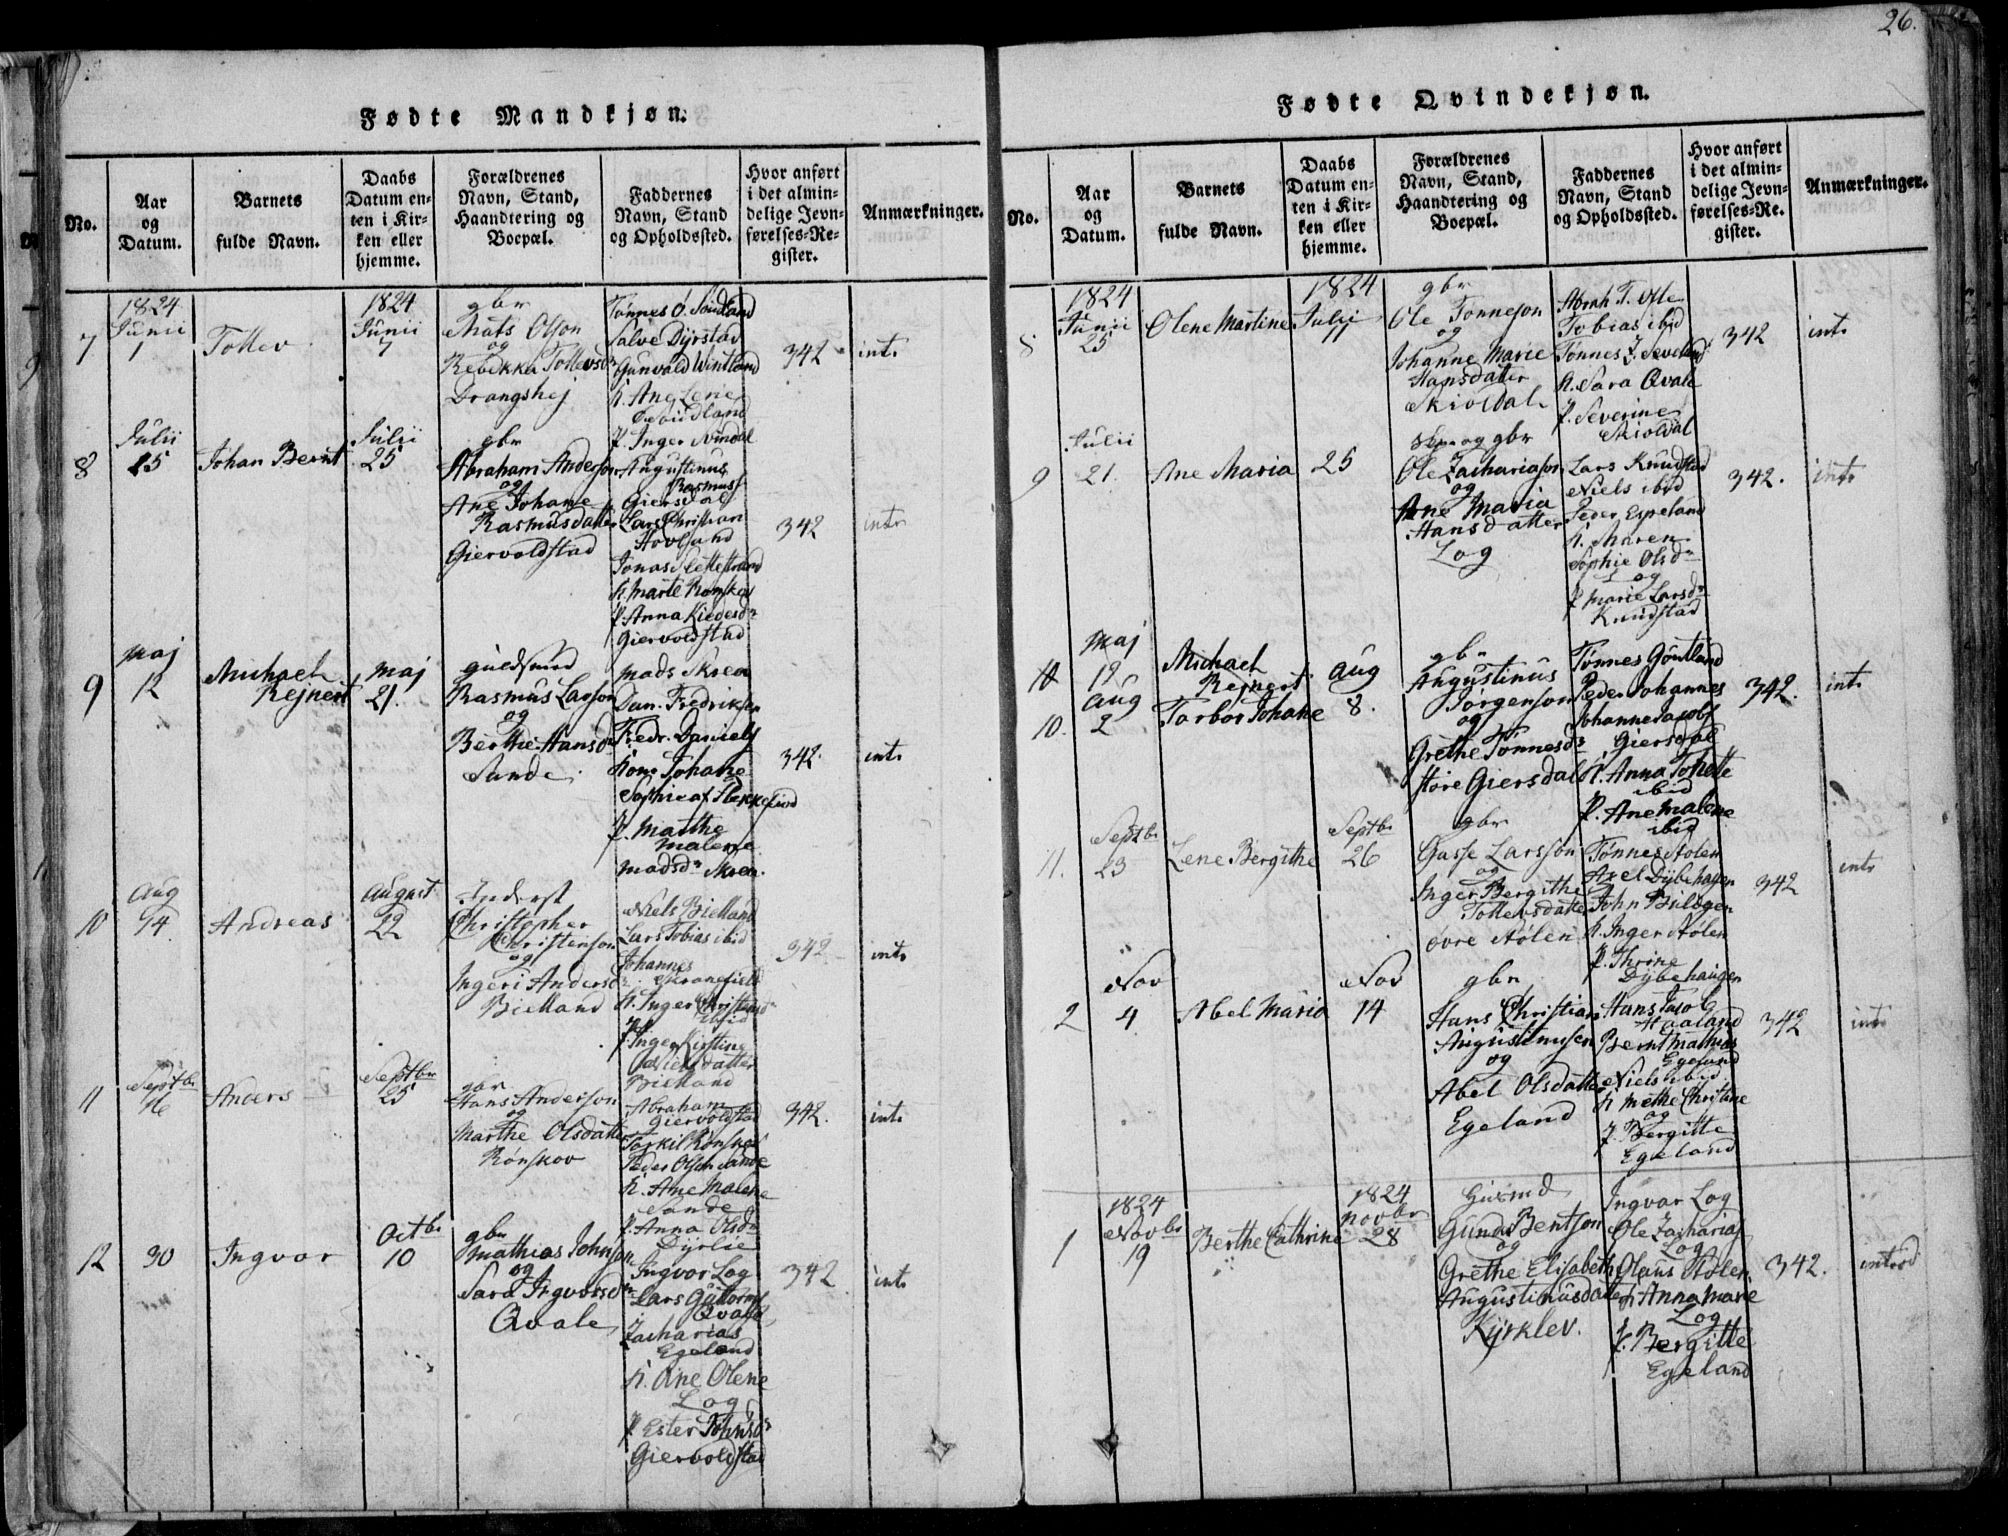 26.
Fødte Mandkjøn.
No.
Aar
og
Datum.
Barnets
fulde Navn.
Daabs
Datum en-
ten i Kir-
ken eller
hjemme.
Forældrenes
Navn, Stand,
Haandtering og
Boepæl.
Faddernes
Navn, Stand
og Opholdssted.
Hvor anført
i det almin-
delige Jevn-
førelses-Re-
gister.
Anmærkninger.
7
1824
Junii
1
Tollev
1824
Junii
7
gbr
Mats Olson
og
Rebekka Tollevsdr
Drangshej
Tønnes O. Søudland
Salve Dyrstad
Gunvald Windland
K. Ane Lene
Søudland
P. Inger Svindal
342
int.
8
Julii
15
Johan Bernt
Julii
25
gbr
Abraham Anderson
og
Ane Johane
Rasmusdatter
Giervoldstad
Augustinus
Rasmus
Giersdal
Lars Christian
Hovland
Jonas Slettestrand
K. Marte Rønskov
P. Anna Kiedesdr
Giervoldstad
342
int.
9
Maj
12
Michael
Rejnert
Maj
21.
Rasmus Larson
og
Berthe Hansd
Sande
Mads Skoen
Dan. Fredriksen
Fredr. Daniels
Kone Johane
Sophie af Flekkefiord
P. Marthe
Malene
Madsdr Skoen.
342.
int.
10
Aug
14
Andreas
August
22
Inderst
Christopher
Christenson
og
Ingeri Andersdr
Bielland
Niels Bielland
Lars Tobias ibid
Johannes
K. Inger Christensdr
ibid
P. Inger Kirstine
Nielsdatter
Bielland
342
int.
11
Septbr
16
Anders
Septbr
25
gbr
Hans Anderson
og
Marthe Olsdatter
Rønskov
Abraham
Giervoldstad
Torkil Rønskov
Peder Olsen Sande
K. Ane Malene
Sande
P. Anna Olsdr
Dyrlie
342.
int.
12
30
Ingvor
Octbr
10
gbr
Mathias Johnson
og
Sara Ingvorsdr
Qvale
Ingvor Log
Lars Guttorms
Qvale
Zacharias
Egeland
K. Ane Olene
Log
P. Ester Johnsdr
Giervoldstad
342
int.
Fødte Qvindekjøn.
No.
Aar
og
Datum.
Barnets
fulde Navn.
Daabs
Datum en-
ten i Kir-
ken eller
hjemme.
Forældrenes
Navn, Stand,
Haandtering og
Boepæl.
Faddernes
Navn, Stand
og Opholdssted.
Hvor anført
i det almin-
delige Jevn-
førelses-Re-
gister.
Anmærkninger.
8
1824
Junii
25
Olene Martine
1824
Julii
11
gbr
Ole Tønneson
og
Johanne Marie
Hansdatter
Skioldal
Abrah. T. Ofte
Tobias ibid
Tønnes J. Seveland
K. Sara Qvale
P. Severine
Skioldal
342
int.
9
Julii
21.
Ane Maria
25
og gbr
Ole Zachariason
og
Ane Maria
Hansdatter
Log
Lars Knudstad
Niels ibid
Peder Espeland
K. Maren
Sophie Olsdr
Log
P. Marie Larsdr
Knudstad
342.
int.
10
Maj
12
Michael
Rejnert
10.
Aug
2
Tarbor Johane
Aug
8.
gbr
Augustinus
Jørgenson
og
Grethe Tønnesdr
store Giersdal
Tønnes Gøntland
Peder Johannes
Johanne Jacobs
Giersdal
K. Anna Tohette
ibid
P. Ane Malene
ibid
342.
int.
11.
Septbr
23
Lene Bergithe
Septbr
26
gbr
Gasse Larsson
og
Inger Bergithe
Tollevsdatter
øvre Stølen
Tønnes Stolen
Axel Dybehagen
John Bildøen
K. Inger Stølen
P. Thrine
Dybehaugen
342
int.
2
Nov
4
Abel Maria
Nov
14
gbr
Hans Christian
Augustinusen
og
Abel Olsdatter
Egeland
Hans Jacob
Haaland
Bernt Mathias
Egeland
Niels ibid
K. Mette Christine
og
P. Bergitte
Egeland
342
int.
1
1824
Novbr
19
Berthe Cathrine
1824
Novbr
28
Gunder Bentson
og
Grethe Elisabeth
Augustinusdatter
Kyrklev.
Ingvar Log
Ole Zacharias
Log
Olaus Stølen
K. Anna Marie
Log
P. Bergitte
Egeland
342.
introd